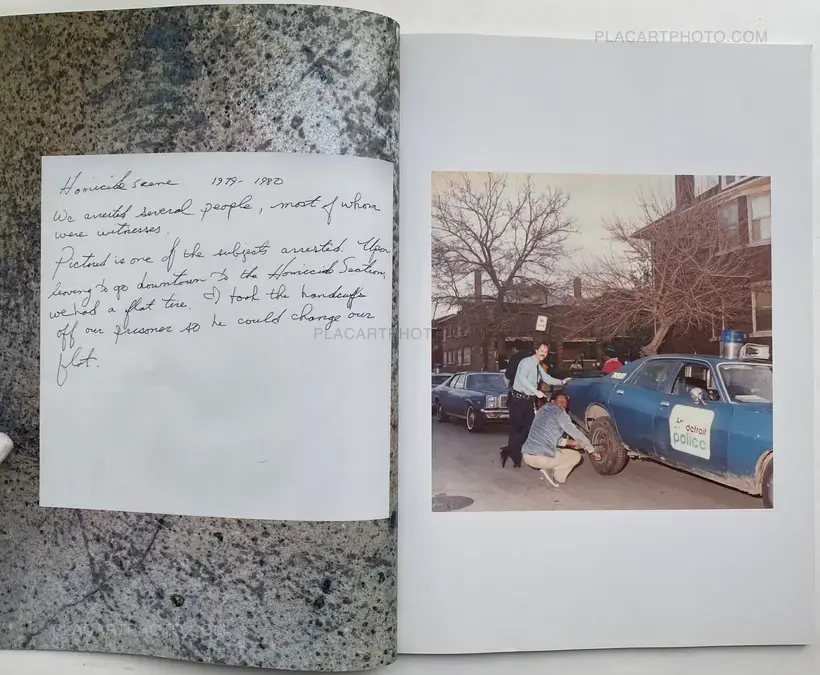 PLACARTPHOTO.COM
Homicide scene 1979-1980
We arrested several people, most of whom
were witnesses.
Pictured is one of the subjects arrested. Upon
leaving to go downtown to the Homicide Section,
we had a flat tire. I took the handcuffs
off our prisoner so he could change our
flat.
detroit
police